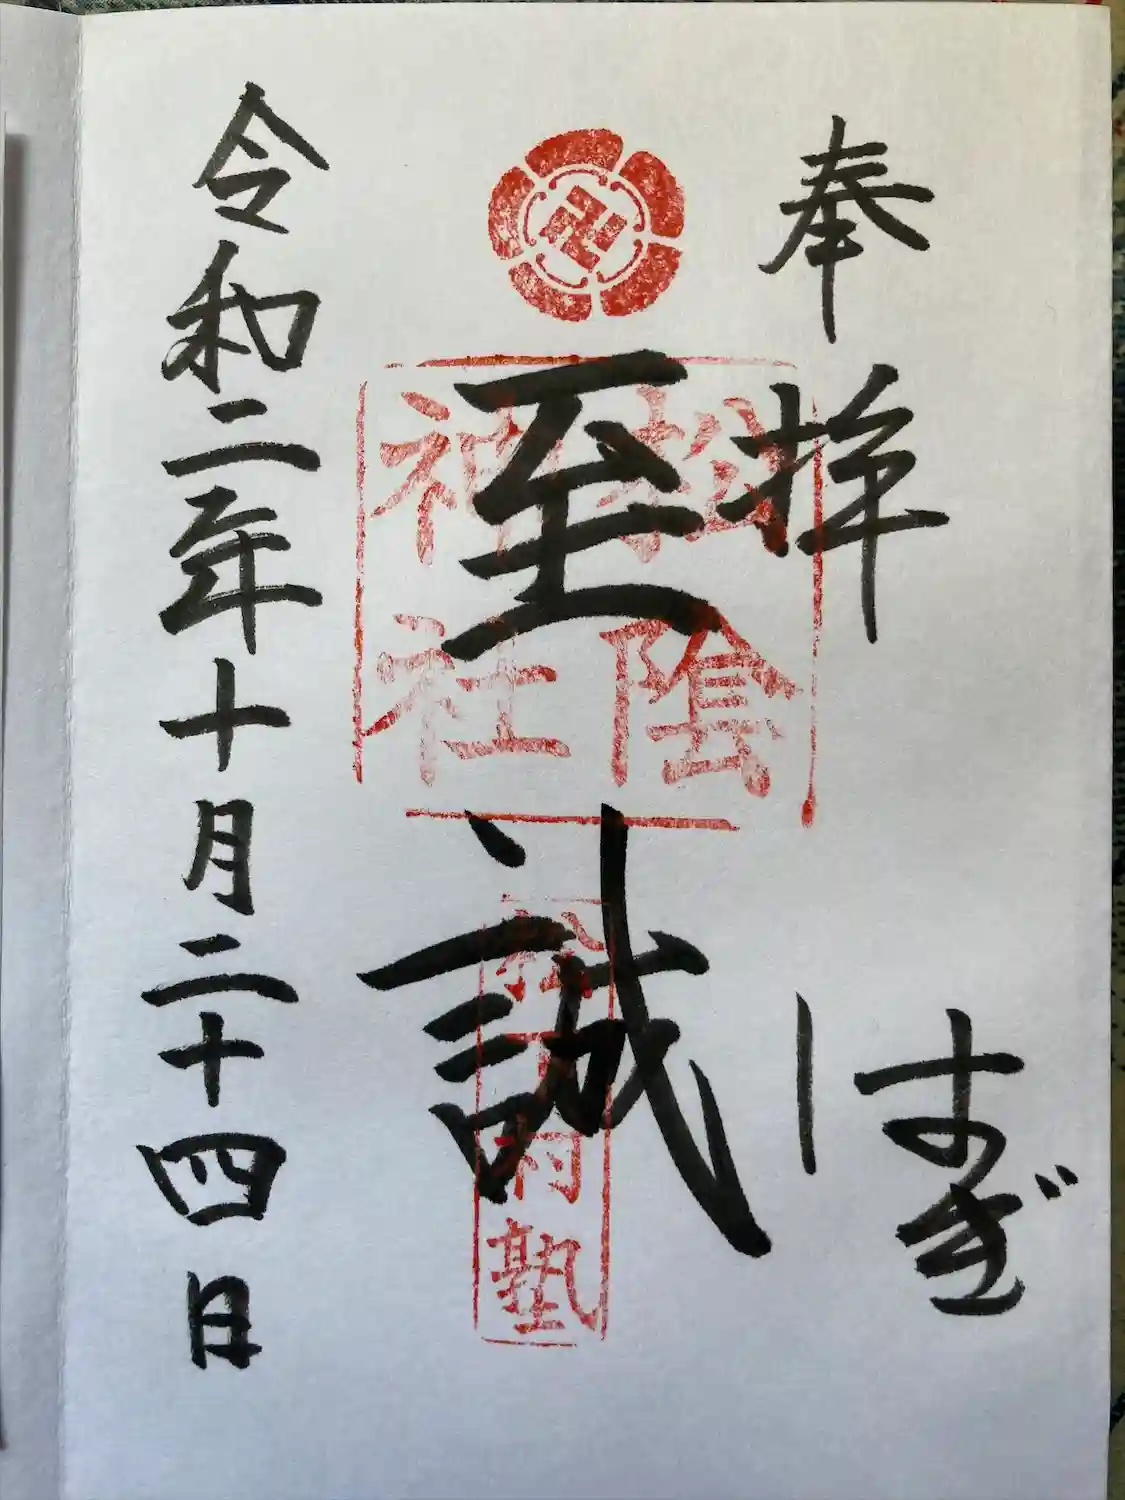 奉拝
すぎ
至誠
松陰
神社
松下村塾
令和二年十月二十四日